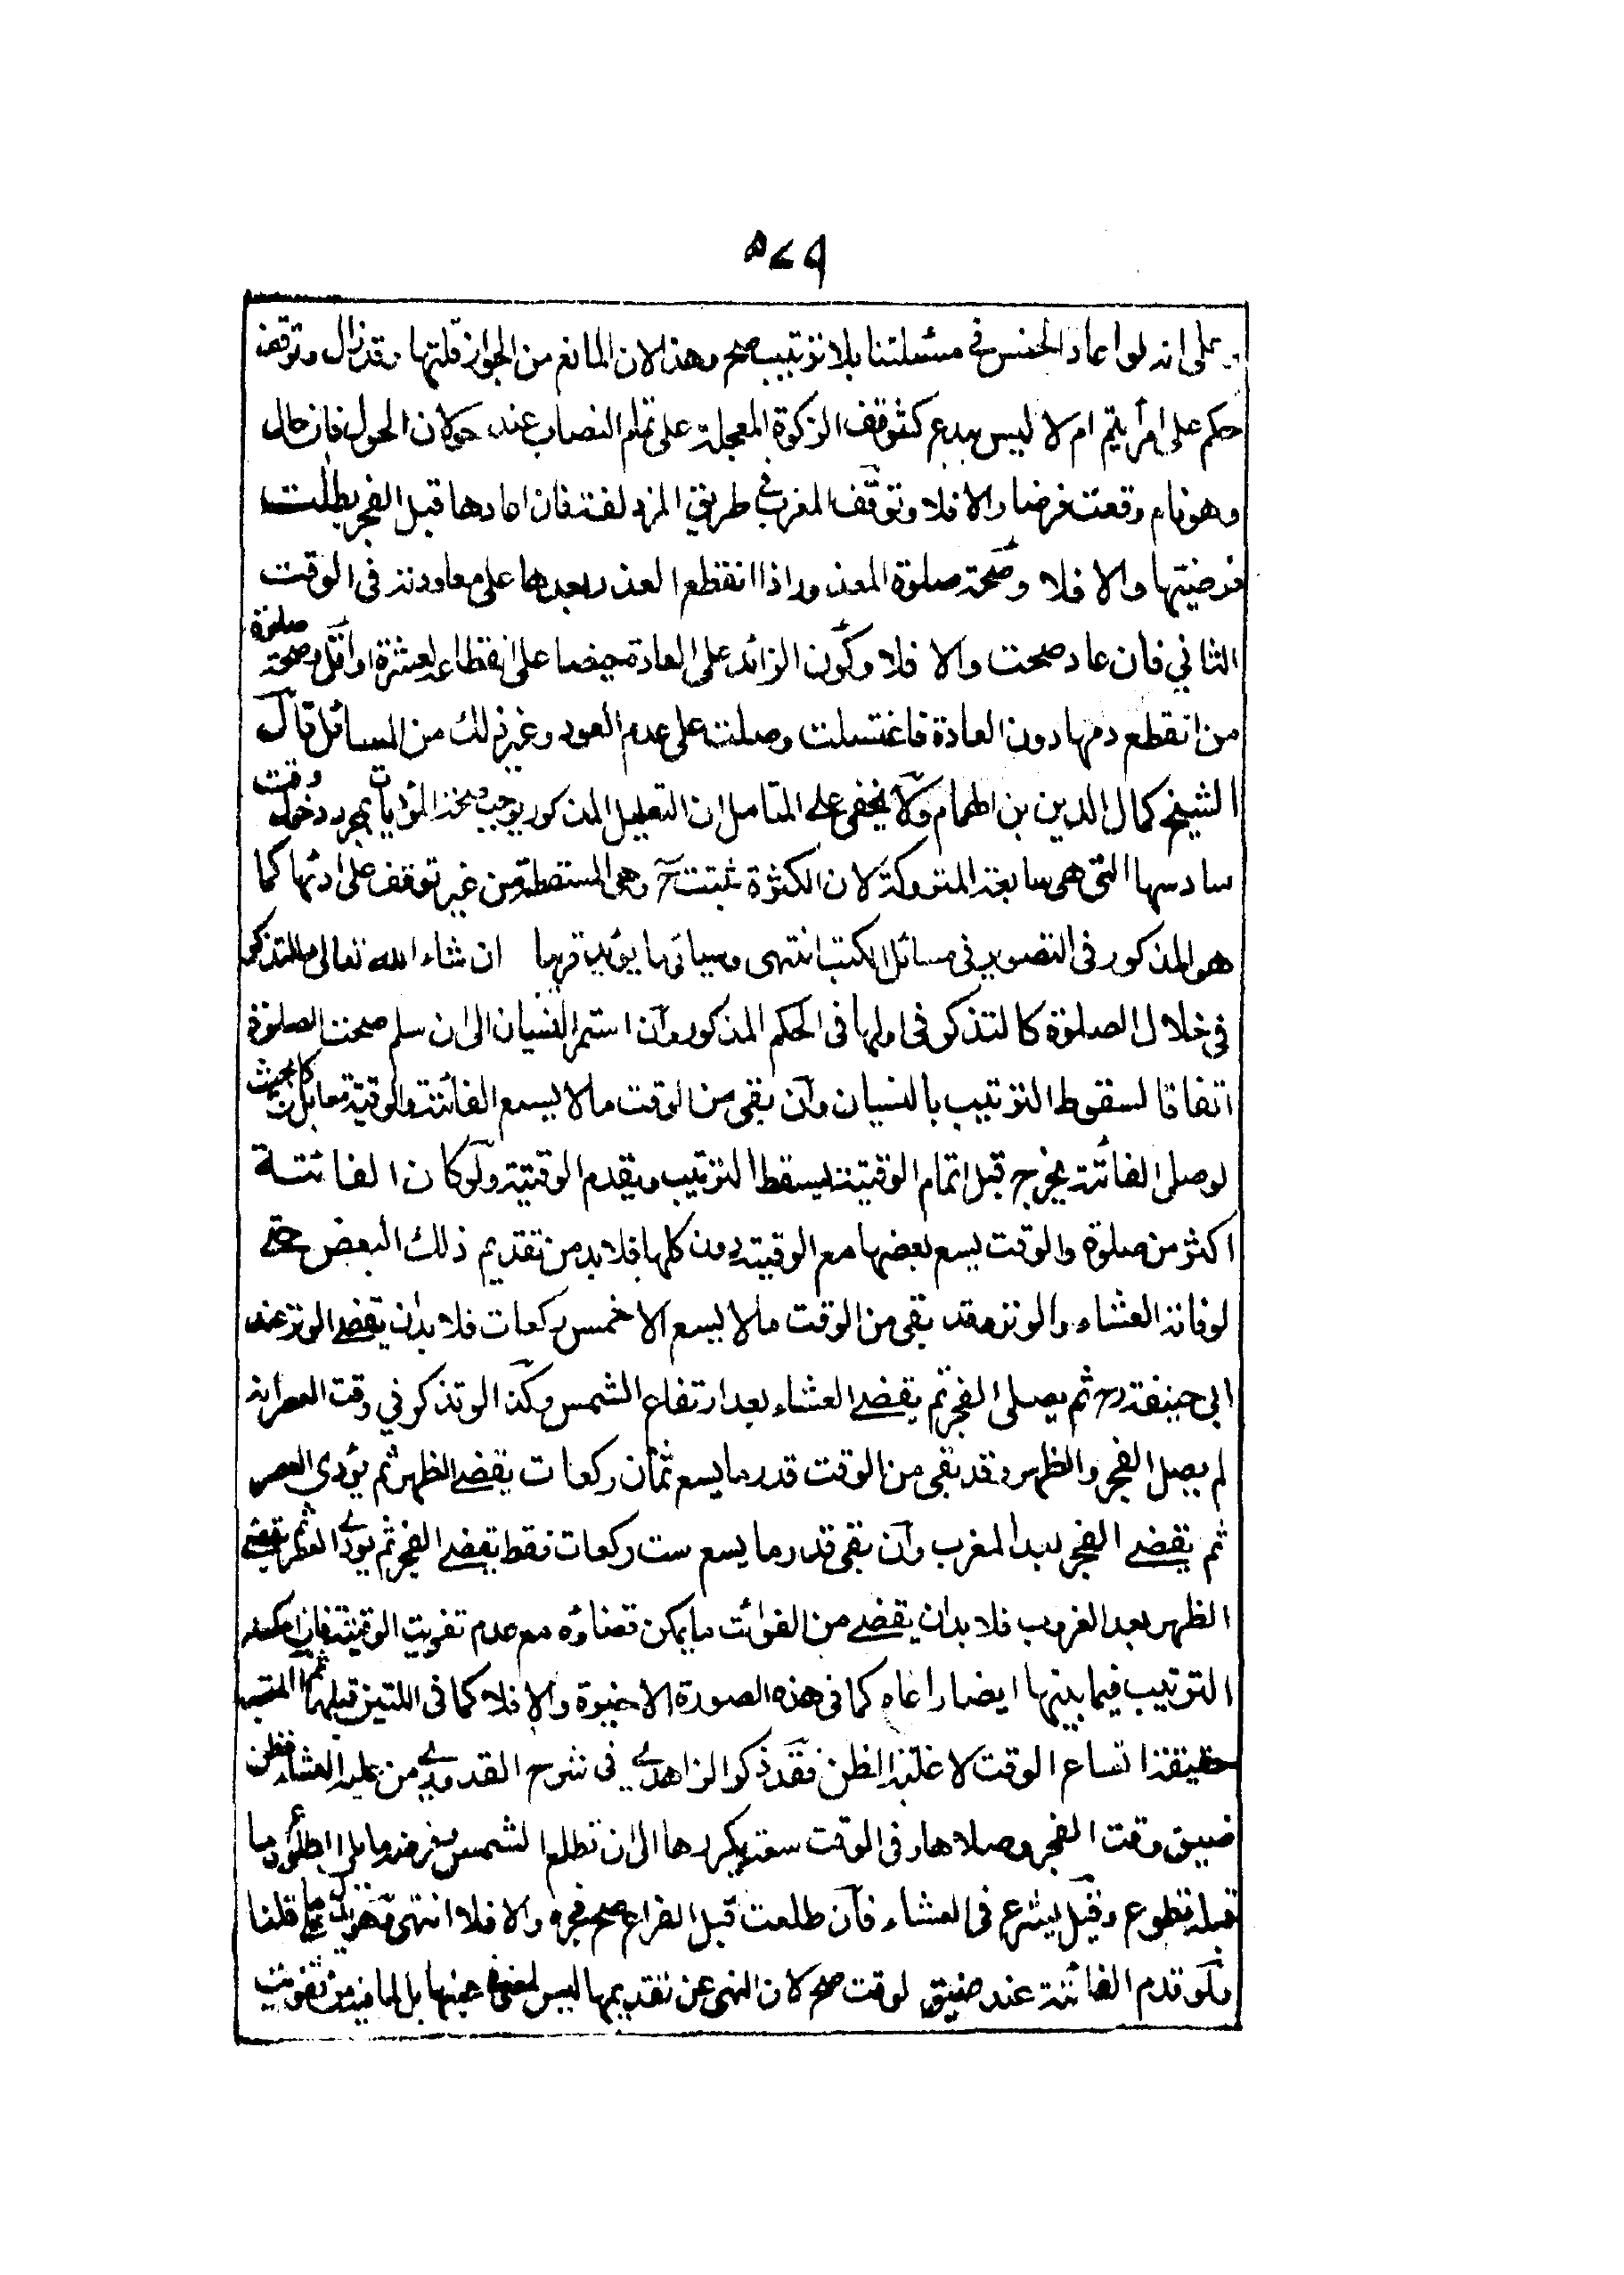 ٥٢٩
على انه لو اعاد الخمس فى مسئلتنا بلا ترتيب صح وهذا لان المانع من الجواز قلتها وقد زال وتوقف
حكم على امر يتم ام لا ليس ببدع كتوقف الزكوة المعجلة على تمام النصاب عند حولان الحول فان حال
وهو نام وقعت فرضا والا فلا وتوقف المغرب فى طريق المزدلفة فان اعادها قبل الفجر بطلت
فرضيتها والا فلا وصحة صلوة المعذور اذا انقطع العذر بعدها على معاودته فى الوقت
الثاني فان عاد صحت والا فلا وكون الزائد على العادة حيضا على انقطاعه لعشرة او اقل وصحة صلوة
من انقطع دمها دون العادة فاغتسلت وصلت على عدم العود وغير ذلك من المسائل قال
الشيخ كمال الدين بن الهمام ولا يخفى على المتامل ان التعليل المذكور يوجب صحة المؤديات بمجرد دخول وقت
سادسها التى هى سابعة المتروكة لان الكثرة تثبت ح وهى المسقطة من غير توقف على ادائها كما
هو المذكور فى التصوير فى مسائل الكتب انتهى وسياتى ما يؤيد قريبا ان شاء الله تعالى والتذكر
فى خلال الصلوة كالتذكر فى اولها فى الحكم المذكور وان استمر النسيان الى ان سلم صحت الصلوة
اتفاقا لسقوط الترتيب بالنسيان وان بقى من الوقت ما لا يسع الفائتة والوقتية معا بل كان بحيث
لو صلى الفائتة يخرج قبل اتمام الوقتية يسقط الترتيب ويقدم الوقتية ولو كان الفائتة
اكثر من صلوة والوقت يسع بعضها مع الوقتية دون كلها فلا بد من تقديم ذلك البعض حتى
لو فاته العشاء والوتر وقد بقى من الوقت ما لا يسع الا خمس ركعات فلا بد ان يقضے الوتر عند
ابى حنيفة رح ثم يصلى الفجر ثم يقضے العشاء بعد ارتفاع الشمس وكذا لو تذكر في وقت العصر انه
لم يصل الفجر والظهر وقد بقى من الوقت قدر ما يسع ثمان ركعات يقضے الظهر ثم يؤدى العصر
ثم يقضے الفجر بعد المغرب وان بقى قدر ما يسع ست ركعات فقط يقضے الفجر ثم يؤدے العصر ثم يقضے
الظهر بعد الغروب فلا بد ان يقضے من الفوائت ما يمكن قضاؤه مع عدم تفويت الوقتية فان امكنه
الترتيب فيما بينها ايضا راعاه كما فى هذه الصورة الاخيرة والا فلا كما فى اللتين قبلها ثم المعتبر
حقيقة اتساع الوقت لا غلبة الظن فقد ذكر الزاهدے فى شرح القدورے من عليه العشاء فظن
ضيق وقت الفجر وصلاها وفى الوقت سعة يكررها الى ان تطلع الشمس وفرضه ما يلى الطلوع وما
قبله تطوع وقيل يشرع فى العشاء فان طلعت قبل الفراغ صح فجره والا فلا انتهى فهو يدل على ما قلنا
ولو قدم الفائتة عند ضيق الوقت صح لان النهى عن تقديمها ليس لمعنى فى عينها بل لما فيه من تفويت